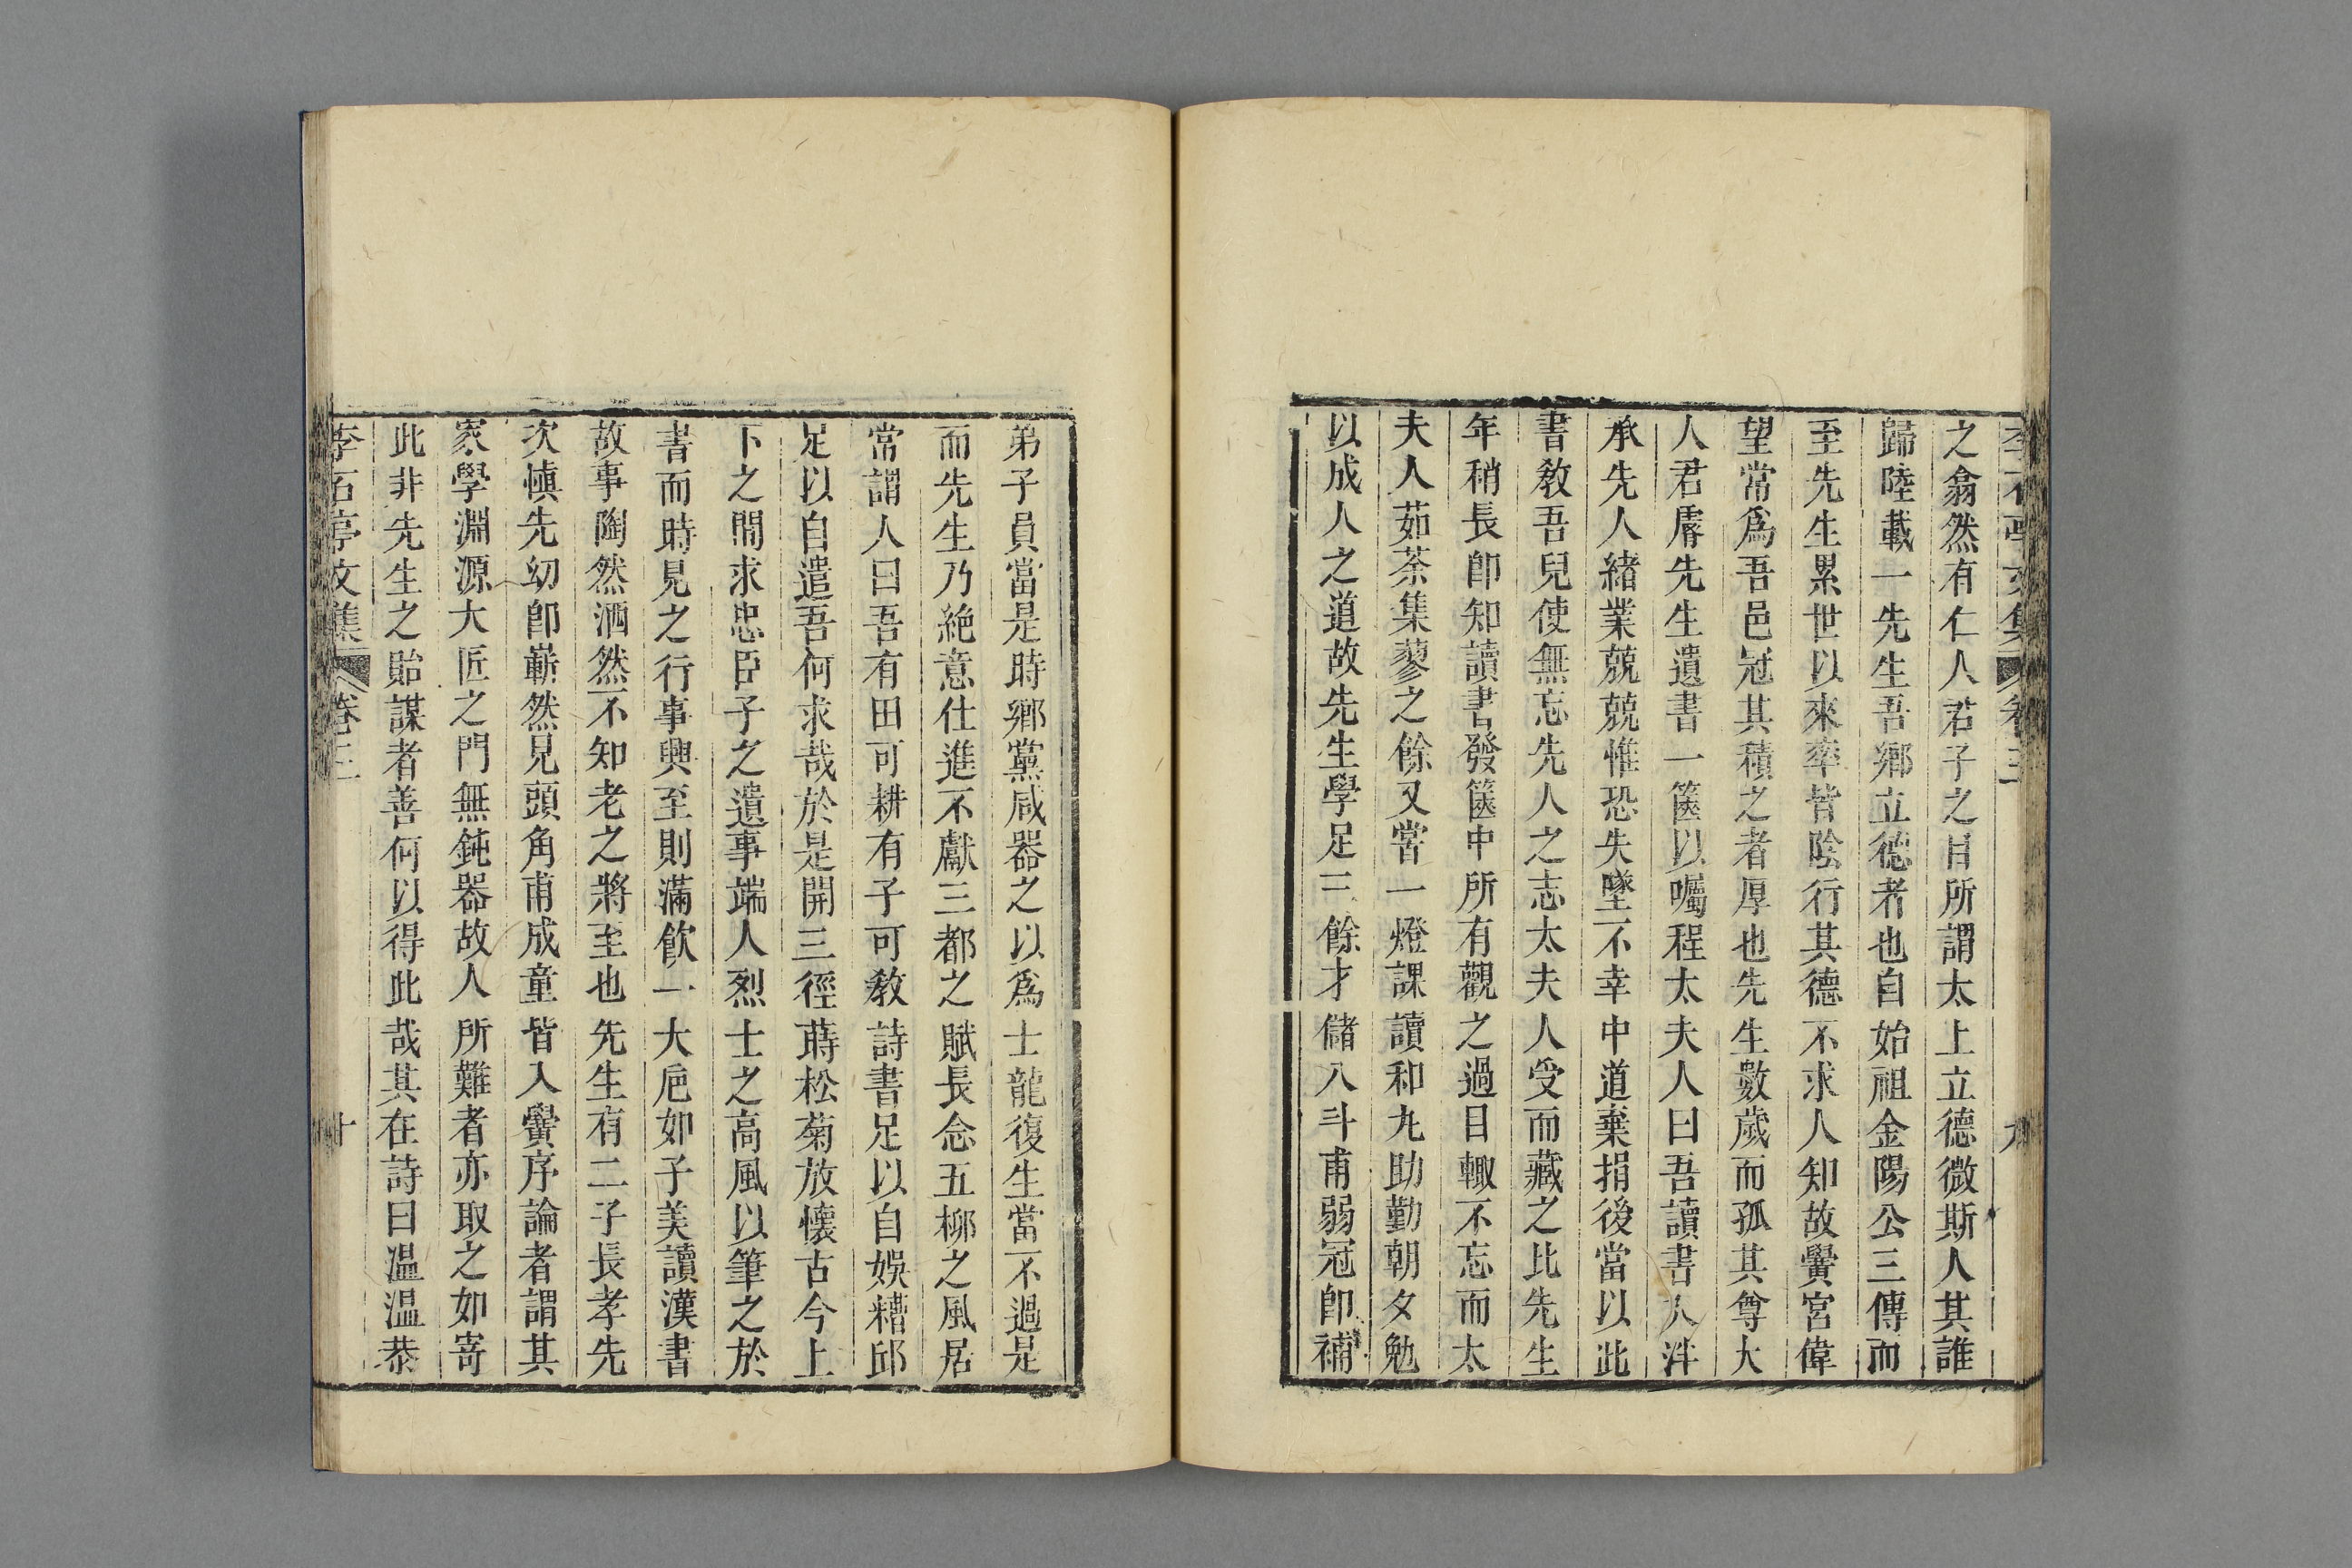 李石亭文集 卷三 九
之翕然有仁人若子之目所謂太上立德微斯人其誰
歸陸載一先生吾鄉立德者也自始祖金陽公三傳而
至先生累世以來率皆陰行其德不求人知故黌宮偉
望常爲吾邑冠其積之者厚也先生數歲而孤其尊大
人君膺先生遺書一篋以囑程太夫人曰吾讀書人泮
承先人緒業兢兢惟恐失墜不幸中道棄捐後當以此
書教吾兒使無忘先人之志太夫人受而藏之比先生
年稍長卽知讀書發篋中所有觀之過目輙不忘而太
夫人茹荼集蓼之餘又嘗一燈課讀和丸助勤朝夕勉
以成人之道故先生學足三餘才儲八斗甫弱冠卽補
弟子員當是時鄉黨咸器之以爲士龍復生當不過是
而先生乃絶意仕進不獻三都之賦長念五柳之風居
常謂人曰吾有田可耕有子可教詩書足以自娛糟邱
足以自遣吾何求哉於是開三徑蒔松菊放懷古今上
下之間求忠臣子之遺事端人烈士之高風以筆之於
書而時見之行事興至則滿飲一大巵如子美讀漢書
故事陶然洒然不知老之將至也先生有二子長孝先
次愼先幼卽嶄然見頭角甫成童皆入黌序論者謂其
家學淵源大匠之門無鈍器故人所難者亦取之如寄
此非先生之貽謀者善何以得此哉其在詩曰溫溫恭
李石亭文集 卷三 十